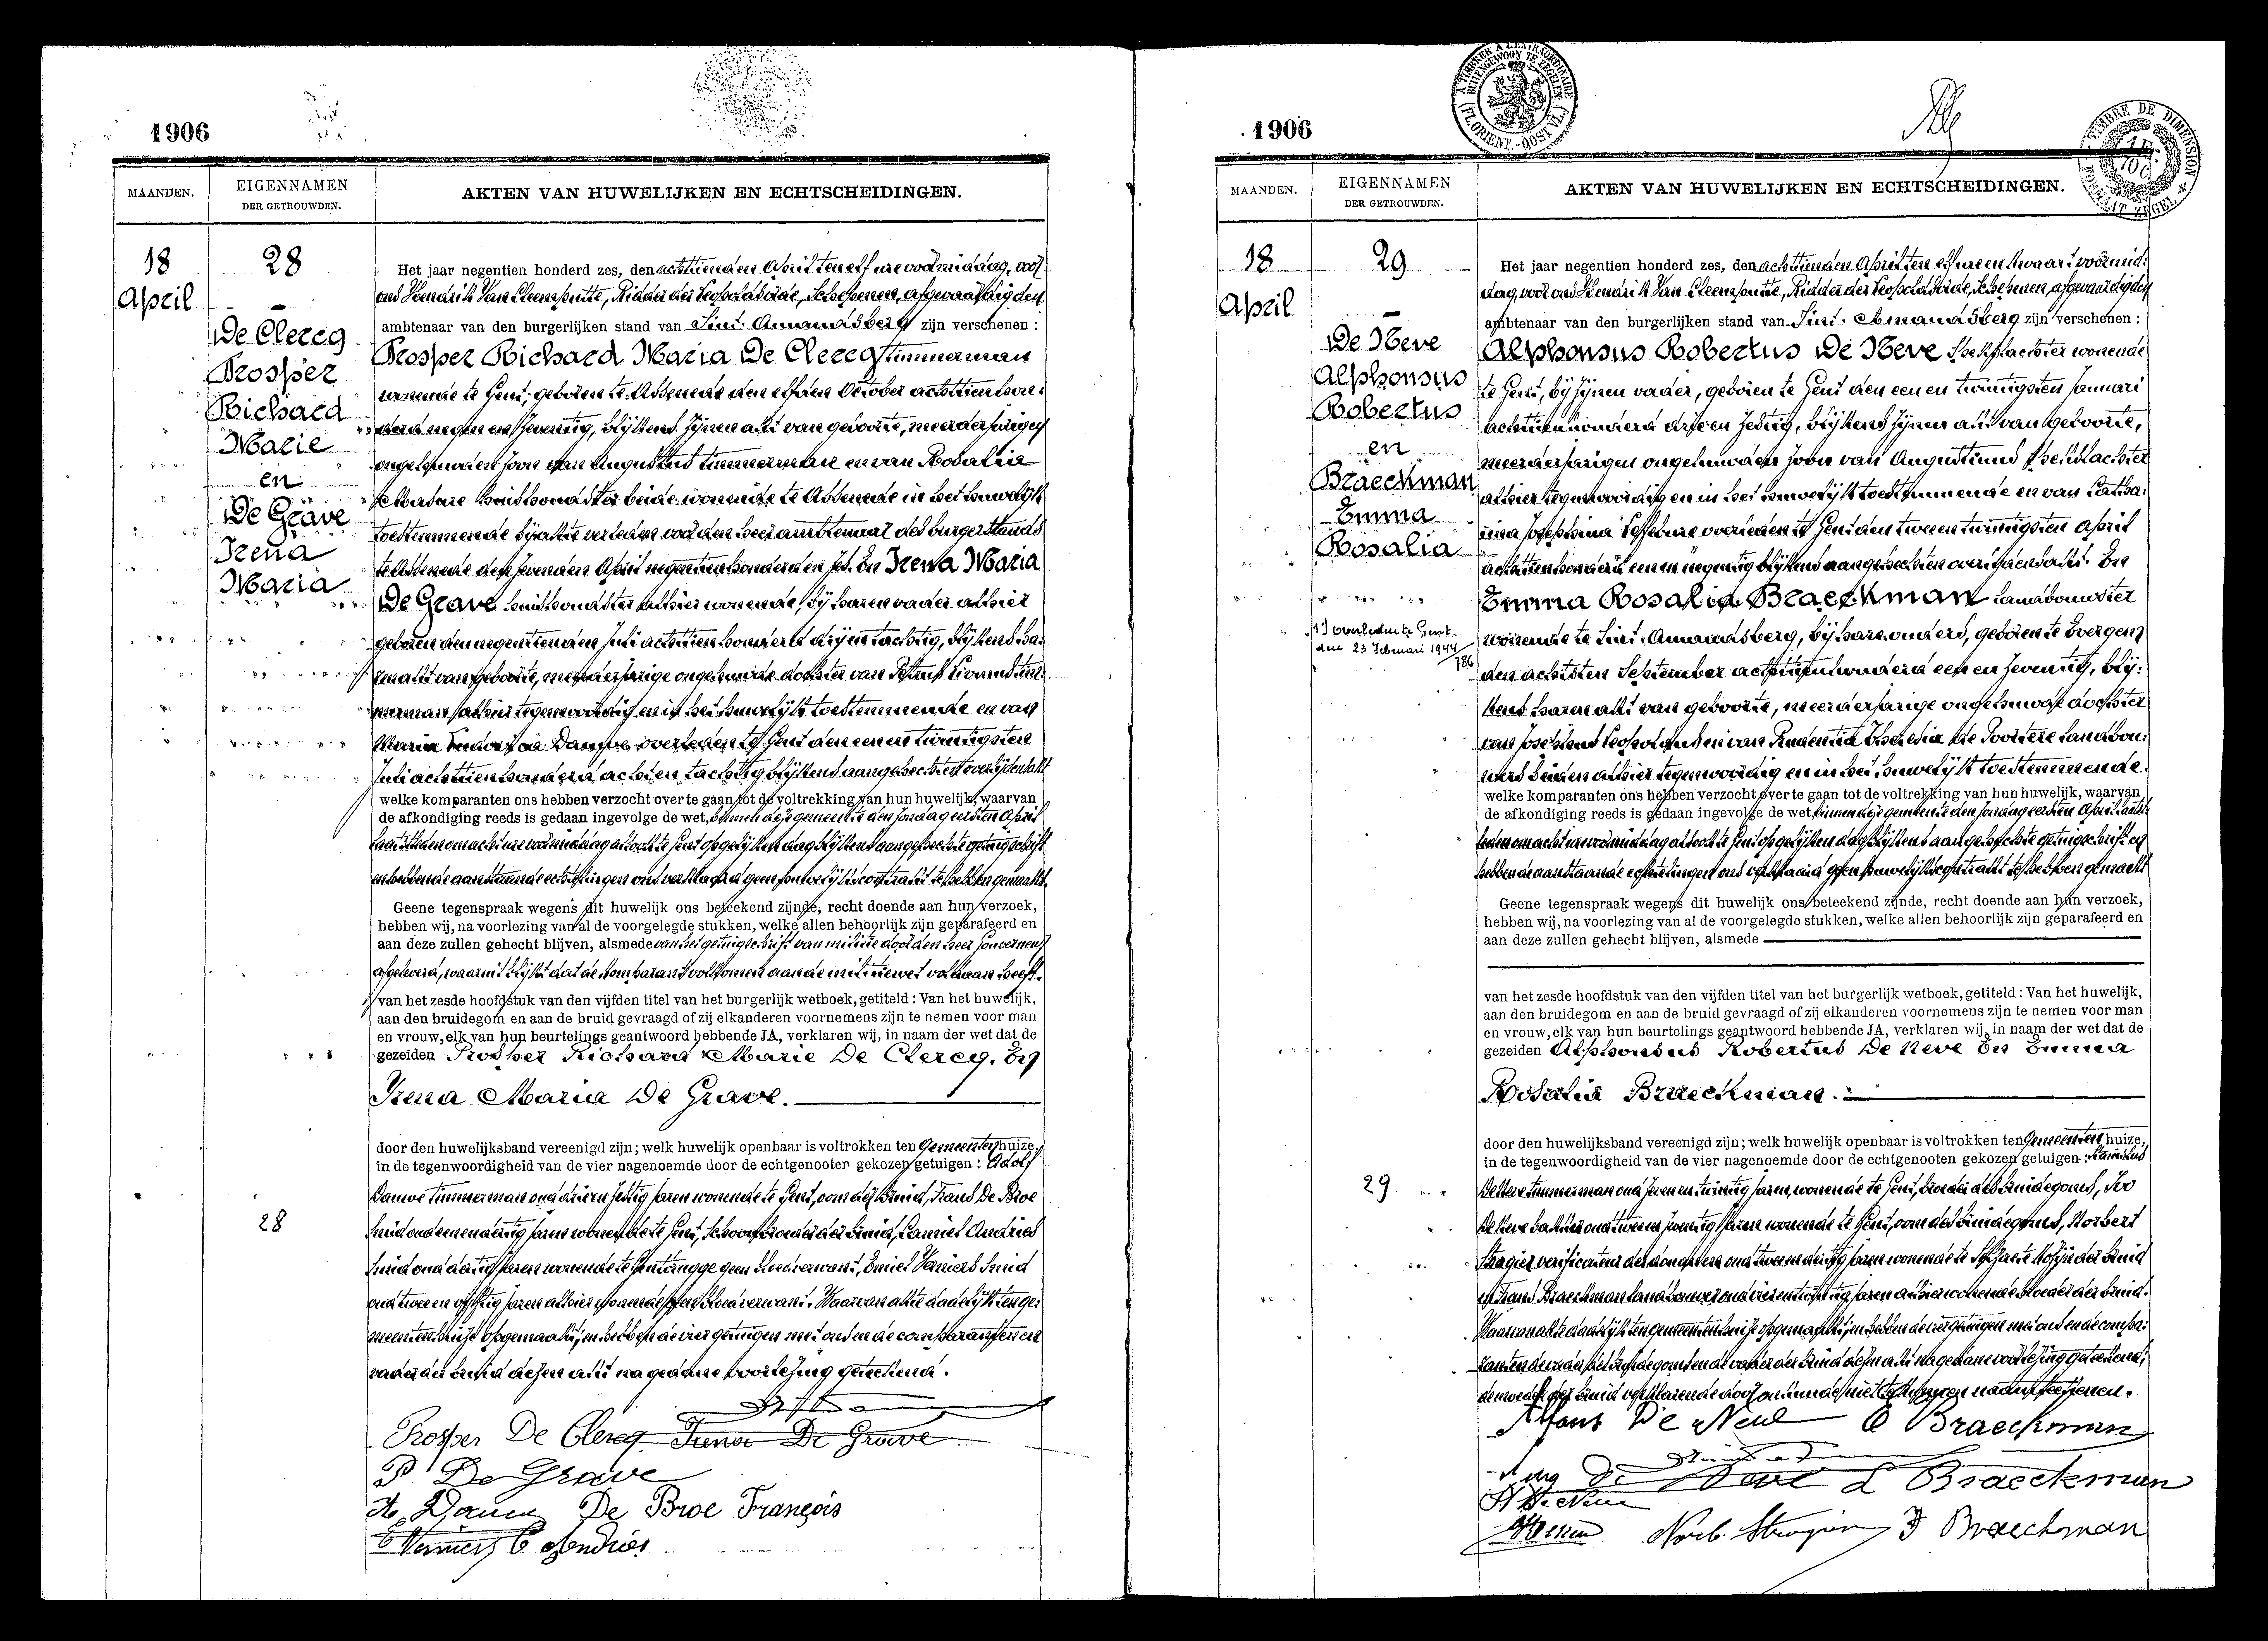 1906
MAANDEN.
EIGENNAMEN
DER GETROUWDEN.
AKTEN VAN HUWELIJKEN EN ECHTSCHEIDINGEN.
18
April
28
De Clercq
Prosper
Richard
Marie
en
De Grave
Irena
Maria
Het jaar negentien honderd zes, den achttienden April ten elf ure voormiddag, voor
ons Hendrik Van Cleemputte, Ridder der Leopoldsorde, Schepenen, afgevaardigden
ambtenaar van den burgerlijken stand van Sint-Amandsberg zijn verschenen :
Prosper Richard Maria De Clercq timmerman
wonende te Gent, geboren te Assenede den elfden October achttien hon-
derd negen en zeventig, blijkens zijnen akt van geboorte, meerderjarigen
ongehuwden zoon van Augustus timmerman en van Rosalia
huishoudster beide wonende te Assenede in het huwelijk
toestemmende bij akte verleden voor den heer ambtenaar des burgerstands
te Assenede den April negentien honderd en zes. En Irena Maria
De Grave huishoudster alhier wonende, bij haren vader alhier
geboren den negentienden Juli achttien honderd drij en tachtig, blijkens ha-
ren akt van geboorte, meerderjarige ongehuwde dochter van Petrus tim-
merman alhier tegenwoordig en in het huwelijk toestemmende en van
Maria Dauwe overleden te Gent den een en twintigsten
Juli achttien honderd acht en tachtig blijkens aangehechten overlijdensakt
welke komparanten ons hebben verzocht over te gaan tot de voltrekking van hun huwelijk, waarvan
de afkondiging reeds is gedaan ingevolge de wet, binnen deze gemeente den zondag eersten April
laatstleden om acht ure voormiddag alsook te Gent op gelijken dag blijkens aangehechte getuigschrift
en hebbende aanstaande echtelingen ons verklaard geen huwelijkscontrakt te hebben gemaakt.
Geene tegenspraak wegens dit huwelijk ons beteekend zijnde, recht doende aan hun verzoek,
hebben wij, na voorlezing van al de voorgelegde stukken, welke allen behoorlijk zijn geparafeerd en
aan deze zullen gehecht blijven, alsmede van het getuigschrift van militie door den heer Gouverneur
afgeleverd, waaruit blijkt dat de komparant volkomen aan de militiewet voldaan heeft.
van het zesde hoofdstuk van den vijfden titel van het burgerlijk wetboek, getiteld : Van het huwelijk,
aan den bruidegom en aan de bruid gevraagd of zij elkanderen voornemens zijn te nemen voor man
en vrouw, elk van hun beurtelings geantwoord hebbende JA, verklaren wij, in naam der wet dat de
gezeiden Prosper Richard Marie De Clercq. En
Irena Maria De Grave.
door den huwelijksband vereenigd zijn; welk huwelijk openbaar is voltrokken ten Gemeentenhuize,
in de tegenwoordigheid van de vier nagenoemde door de echtgenooten gekozen getuigen : Adolf
28
Dauwe timmerman oud drij en zestig jaren wonende te Gent, oom der bruid, Frans De Broe
smid oud een en dertig jaren wonende te Gent, schoonbroeder der bruid, Camiel Andries
smid oud dertig jaren wonende te Gentbrugge geen bloedverwant, Emiel Verniers smid
oud twee en vijftig jaren alhier wonende geen bloedverwant. Waarvan akte dadelijk ten ge-
meentenhuize opgemaakt, en hebben de vier getuigen met ons en de comparanten en
vader der bruid dezen akt na gedane voorlezing geteekend.
Prosper De Clercq Irena De Grave
P De Grave
A. Dauwe De Broe François
E Verniers C Andries
1906
MAANDEN.
EIGENNAMEN
DER GETROUWDEN.
AKTEN VAN HUWELIJKEN EN ECHTSCHEIDINGEN.
18
April
29
De Neve
Alphonsus
Robertus
en
Braeckman
Emma
Rosalia
1) overleden te Gent
den 23 Februari 1944
786
Het jaar negentien honderd zes, den achttienden April ten elf ure en kwaart voormid-
dag, voor ons Hendrik Van Cleemputte, Ridder der Leopoldsorde, Schepenen, afgevaardigden
ambtenaar van den burgerlijken stand van Sint-Amandsberg zijn verschenen :
Alphonsus Robertus De Neve wonende
te Gent, bij zijnen vader, geboren te Gent den een en twintigsten Januari
achttien honderd drij en zestig, blijkens zijnen akt van geboorte,
meerderjarigen ongehuwden zoon van Augustinus
alhier tegenwoordig en in het huwelijk toestemmende en van Catha-
rina Josephina overleden te Gent den twee en twintigsten April
achttien honderd een en negentig blijkens aangehechten overlijdensakt. En
Emma Rosalia Braeckman landbouwster
wonende te Sint-Amandsberg, bij hare ouders, geboren te Evergem
den achtsten September achttien honderd een en zeventig, blij-
kens haren akt van geboorte, meerderjarige ongehuwde dochter
van Josephus Leopoldus en van Prudentia De Poortere landbou-
wers beiden alhier tegenwoordig en in het huwelijk toestemmende.
welke komparanten ons hebben verzocht over te gaan tot de voltrekking van hun huwelijk, waarvan
de afkondiging reeds is gedaan ingevolge de wet, binnen deze gemeente den zondag eersten April laatst-
leden om acht ure voormiddag alsook te Gent op gelijken dag blijkens aangehechte getuigschrift en
hebbende aanstaande echtelingen ons verklaard geen huwelijkscontrakt te hebben gemaakt
Geene tegenspraak wegens dit huwelijk ons beteekend zijnde, recht doende aan hun verzoek,
hebben wij, na voorlezing van al de voorgelegde stukken, welke allen behoorlijk zijn geparafeerd en
aan deze zullen gehecht blijven, alsmede
van het zesde hoofdstuk van den vijfden titel van het burgerlijk wetboek, getiteld : Van het huwelijk,
aan den bruidegom en aan de bruid gevraagd of zij elkanderen voornemens zijn te nemen voor man
en vrouw, elk van hun beurtelings geantwoord hebbende JA, verklaren wij, in naam der wet dat de
gezeiden Alphonsus Robertus De Neve En Emma
Rosalia Braeckman.
door den huwelijksband vereenigd zijn; welk huwelijk openbaar is voltrokken ten Gemeentenhuize,
in de tegenwoordigheid van de vier nagenoemde door de echtgenooten gekozen getuigen :
29
De Neve timmerman oud zeven en twintig jaren, wonende te Gent, broeder des bruidegoms, Ivo
De Neve oud twee en zeventig jaren wonende te Gent, oom des bruidegoms, Norbert
Stragier verificateur der douanen oud twee en dertig jaren wonende te Selzaete kozijn der bruid
en Frans Braeckman landbouwer oud vier en jaren alhier wonende broeder der bruid.
Waarvan akte dadelijk ten gemeentenhuize opgemaakt, en hebben de vier getuigen met ons en de compa-
ranten de vader des bruidegoms en de vader der bruid dezen akt na gedane voorlezing geteekend,
de moeder der bruid verklarende door onkunde niet te kunnen naamteekenen.
Alfons De Neve E Braeckman
Aug De Neve L Braeckman
Norb. Stragier F Braeckman